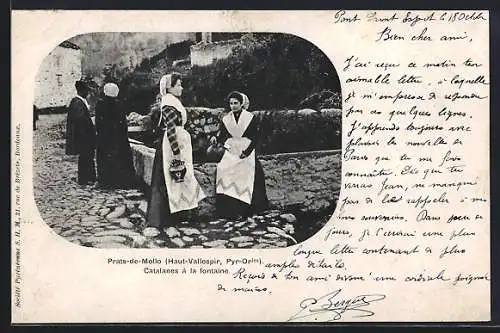 Pont Saint Esprit le 18 Octbr
Bien cher ami,
J'ai reçu ce matin ton
aimable lettre, à laquelle
je m'empresse de répondre
par quelques lignes.
J'apprends toujours avec
plaisir les nouvelles de
Paris que tu me fais
connaître. Dès que tu
verras Jean, ne manque
pas de lui rappeler à
mes souvenirs. Dans peu de
jours, je t'écrirai une plus
longue lettre contenant de plus
amples détails.
Reçois de ton ami dévoué une cordiale poignée
de mains.
Prats-de-Mollo (Haut-Vallespir, Pyr-Orles).
Catalanes à la fontaine.
Société Pyrénéenne S. U. M., 21, rue de Brézets, Bordeaux.